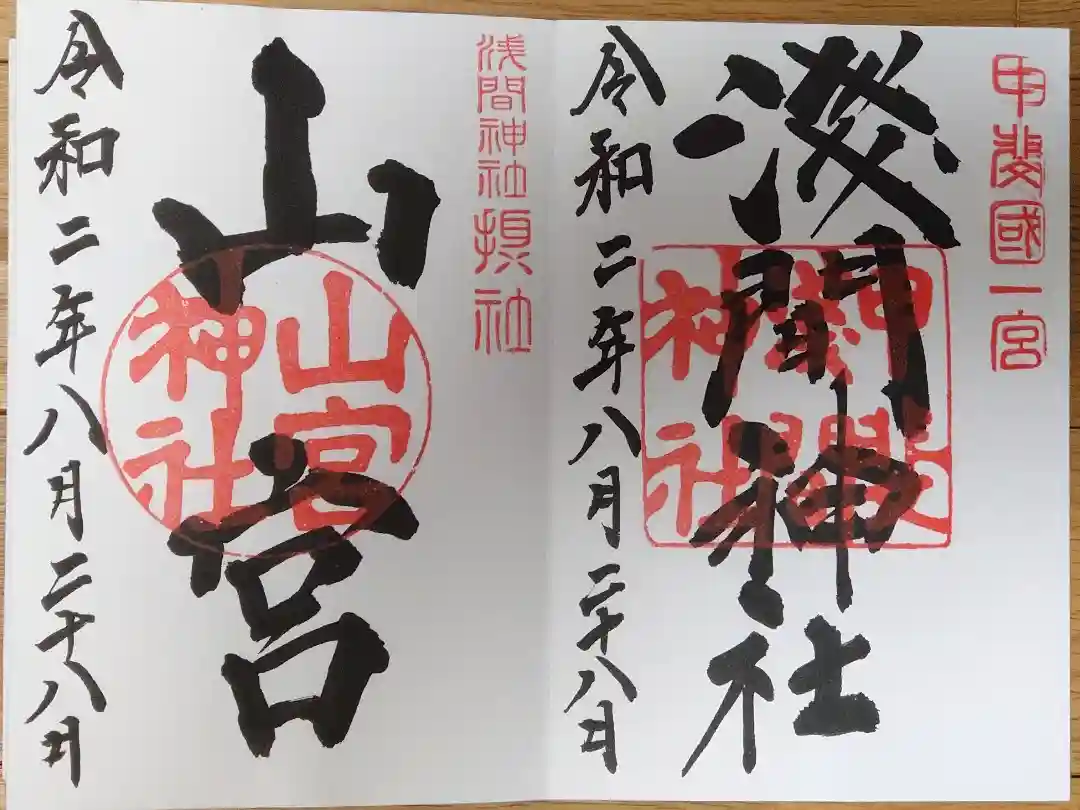 甲斐國一宮
浅間神社
甲斐國浅間神社
令和二年八月二十八日
浅間神社摂社
山宮
山宮神社
令和二年八月二十八日